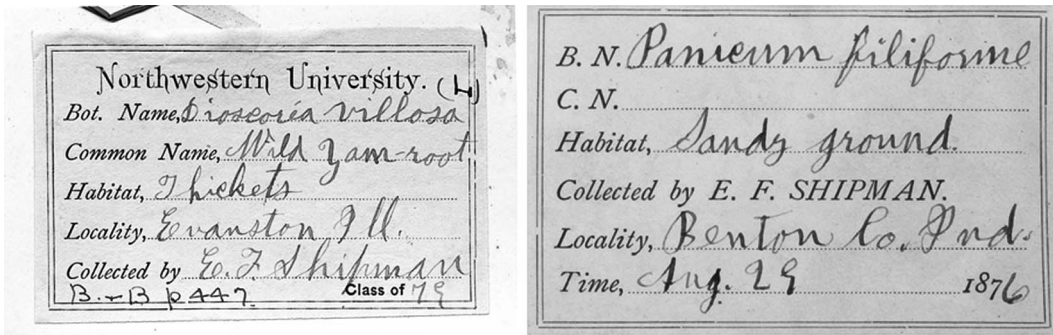 Northwestern University. (L)
Bot. Name, Dioscoria villosa
Common Name, Wild Yam-root
Habitat, Thickets
Locality, Evanston Ill.
Collected by E. F. Shipman
B. + B p 447. Class of 79
B. N. Panicum filiforme
C. N.
Habitat, Sandy ground.
Collected by E. F. SHIPMAN.
Locality, Benton Co. Ind.
Time, Aug. 29 1876